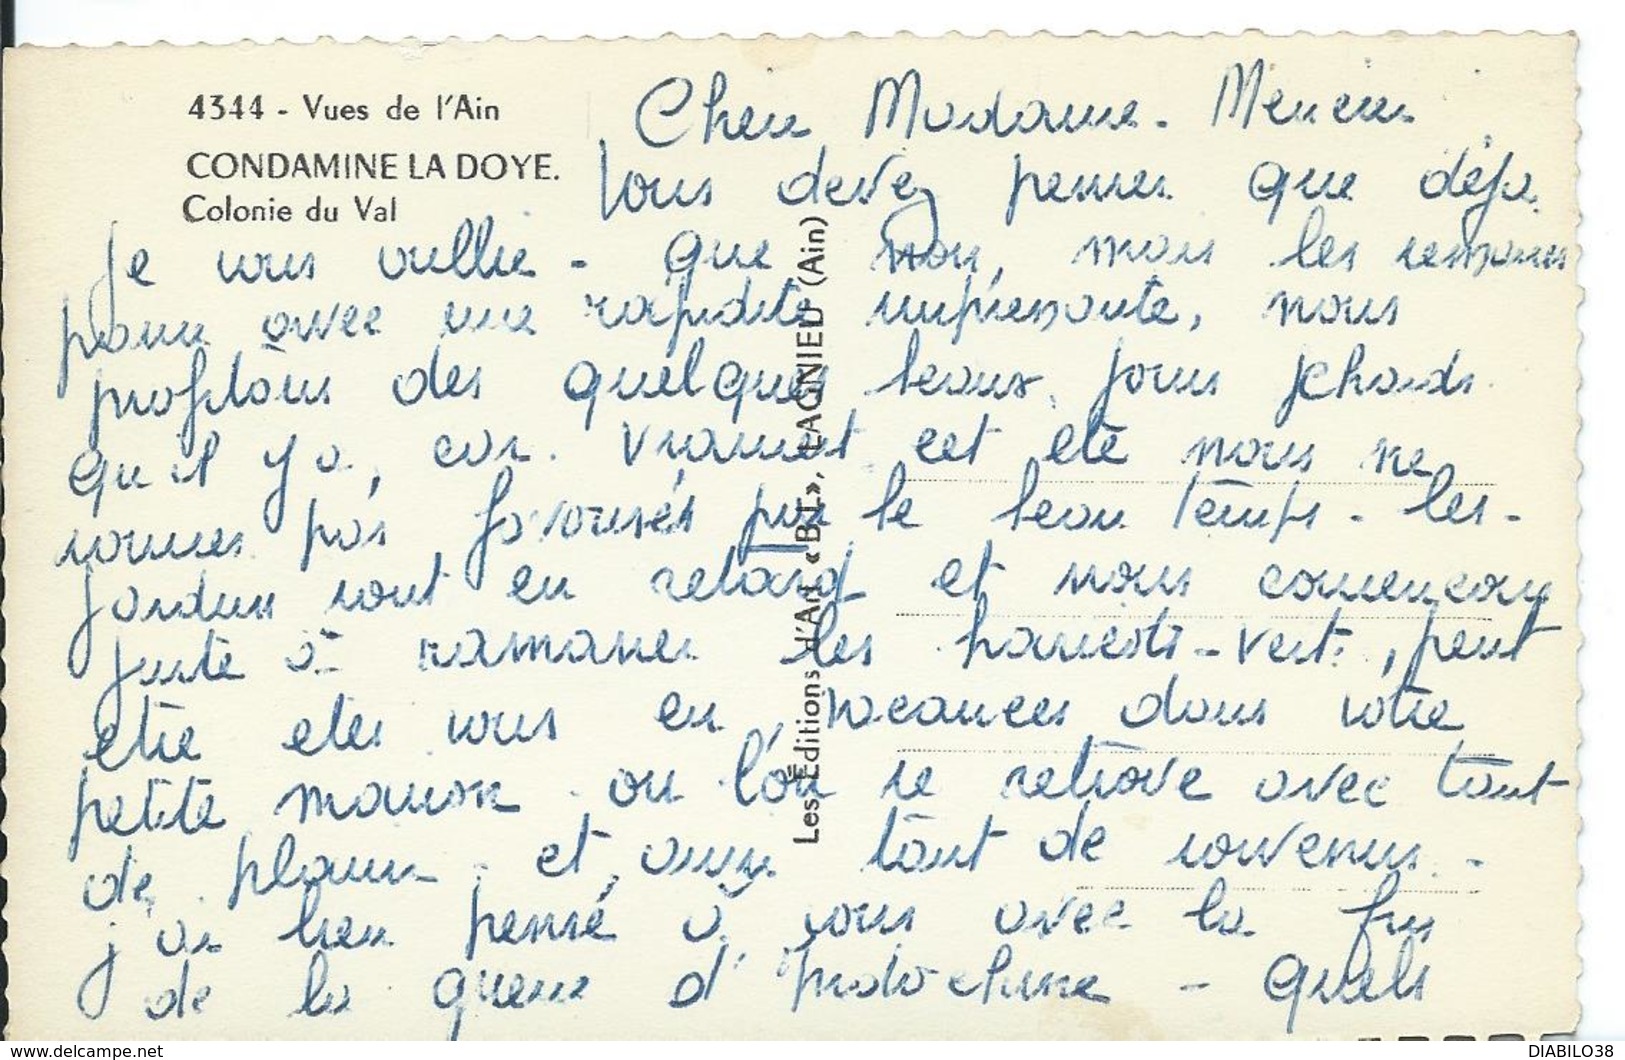 4344 - Vues de l'Ain
CONDAMINE LA DOYE.
Colonie du Val
Les Editions d'Art «BJ», LAGNIEU (Ain)
Cher Madame.
Vous devez penser que déja
Je vous oublie - que non, mais les semaines
passe avec une rapidité impressante, nous
profitons des quelques beaux jours chauds
qu'il y a, car vraiment cet été nous ne
sommes pas favorisés par le beau temps - les
jardins sont en retard et nous comencons
juste à ramaser les haricots-vert, peut
etre etes vous en vacances dans votre
petite maison ou l'on se retrove avec tant
de plaisir et aussi tant de souvenirs -
j'ai bien pensé à vous avec la fin
de la guerre d'Indo-chine - quels
DIABILO38
www.delcampe.net